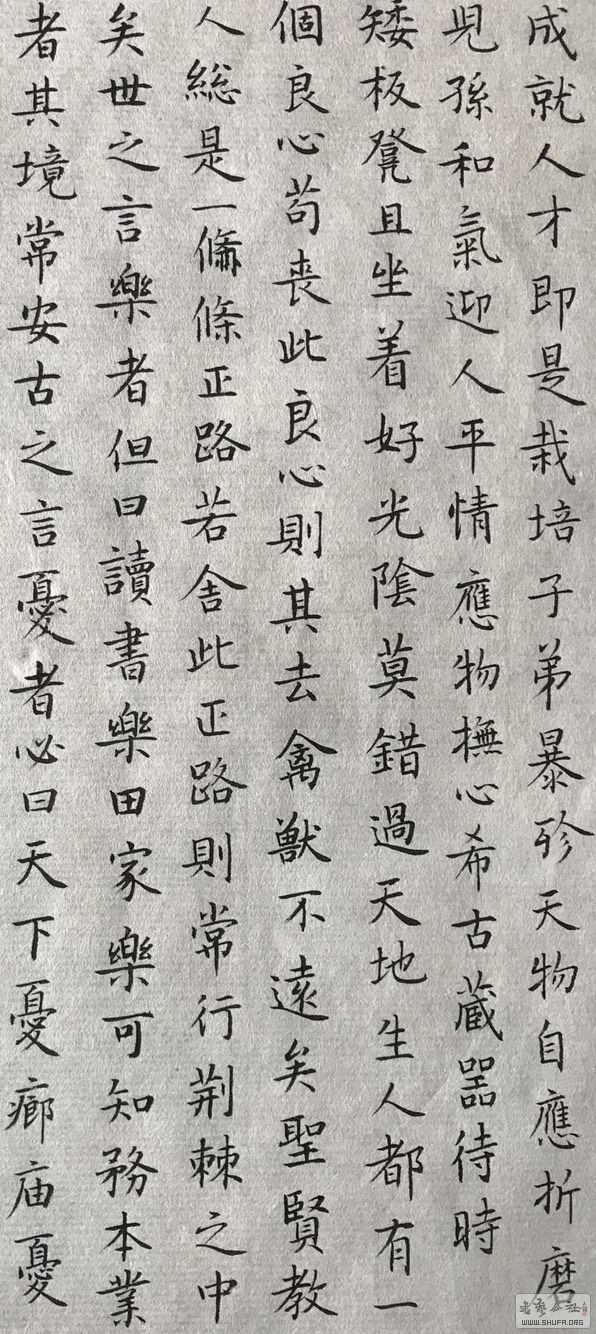 成就人才即是栽培子弟暴殄天物自應折磨
兒孫和氣迎人平情應物撫心希古藏器待時
矮板凳且坐着好光陰莫錯過天地生人都有一
個良心苟喪此良心則其去禽獸不遠矣聖賢教
人總是一條正路若舍此正路則常行荆棘之中
矣世之言樂者但曰讀書樂田家樂可知務本業
者其境常安古之言憂者必曰天下憂廊庙憂
書藝公社
WWW.SHUFA.ORG